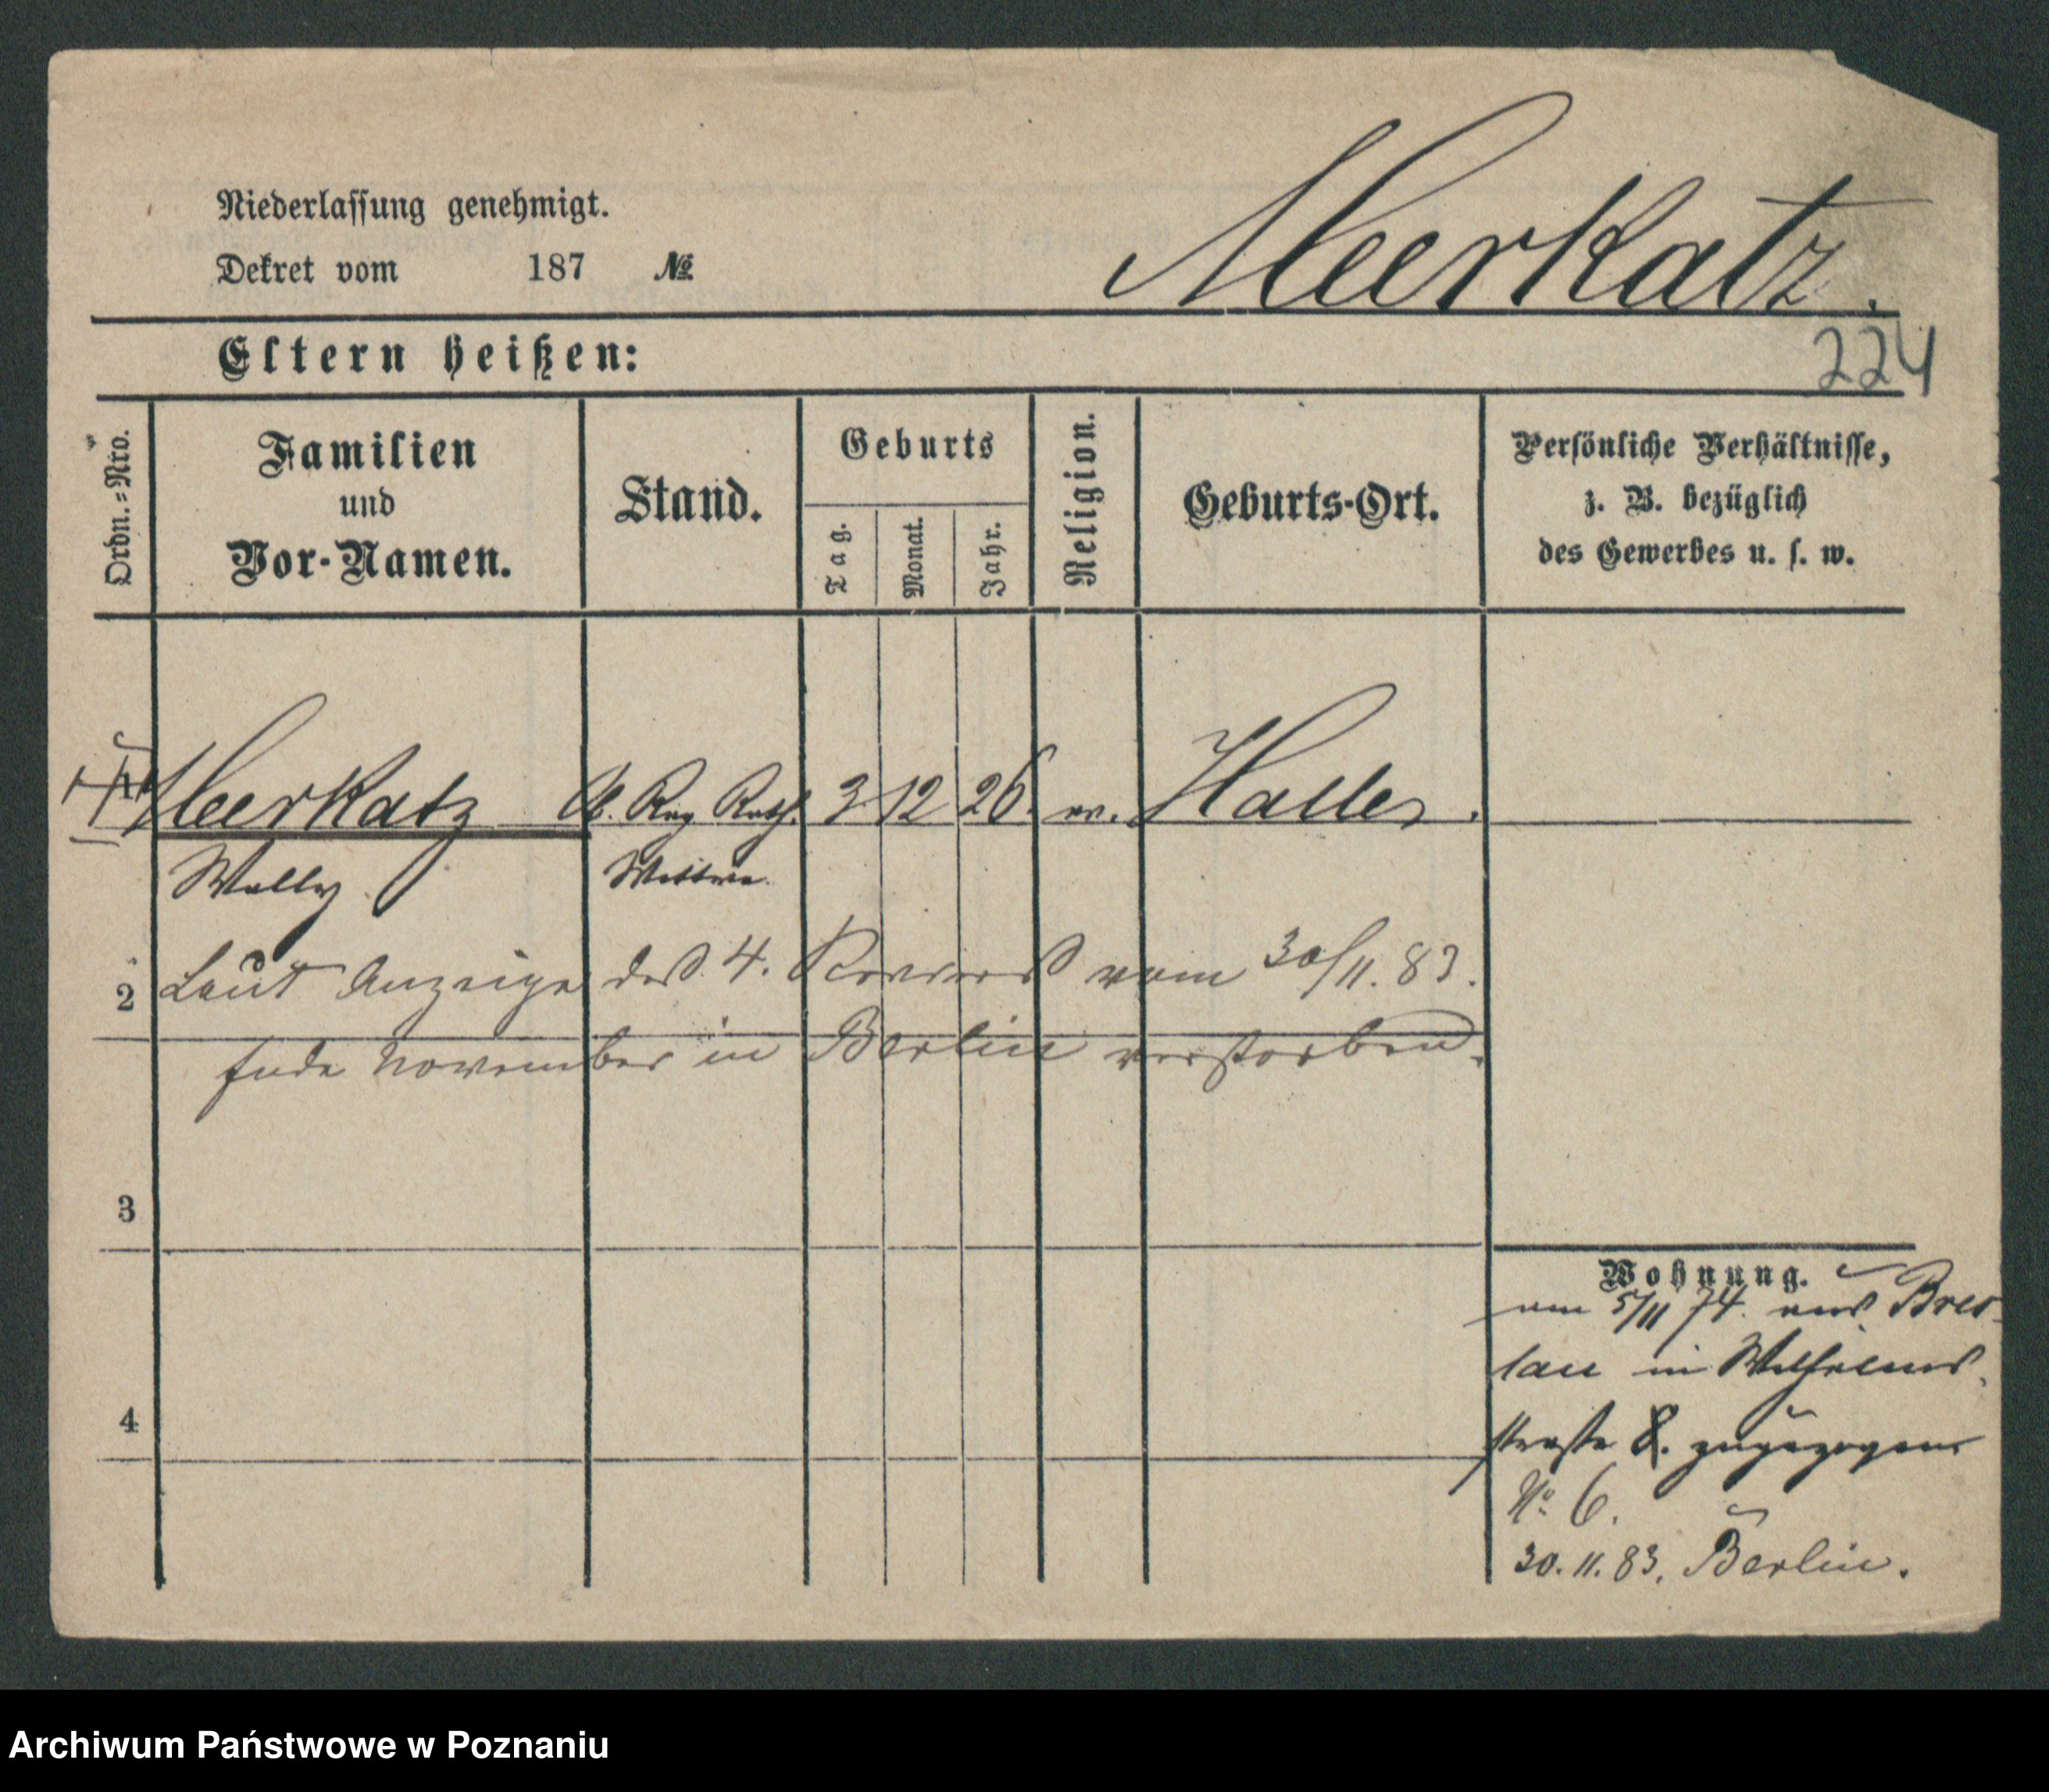 Niederlassung genehmigt.
Dekret vom 187 №
Meerkatz.
Eltern heißen:
224
Ordn.-Nro.
Familien
und
Vor-Namen.
Stand.
Geburts
Tag.
Monat.
Jahr.
Religion.
Geburts-Ort.
Persönliche Verhältnisse,
z. B. bezüglich
des Gewerbes u. s. w.
Meerkatz Ob. Reg Rath. 3 12 26. ev. Halle
Wally Wittwe.
2 Laut Anzeige des 4. Reviers vom 30/11. 83.
Ende November in Berlin verstorben.
3
4
Wohnung.
am 5/11 74. aus Bres-
lau in Wilhelms
straße 8. zugezogen.
No. 6.
30. 11. 83. Berlin.
Archiwum Państwowe w Poznaniu